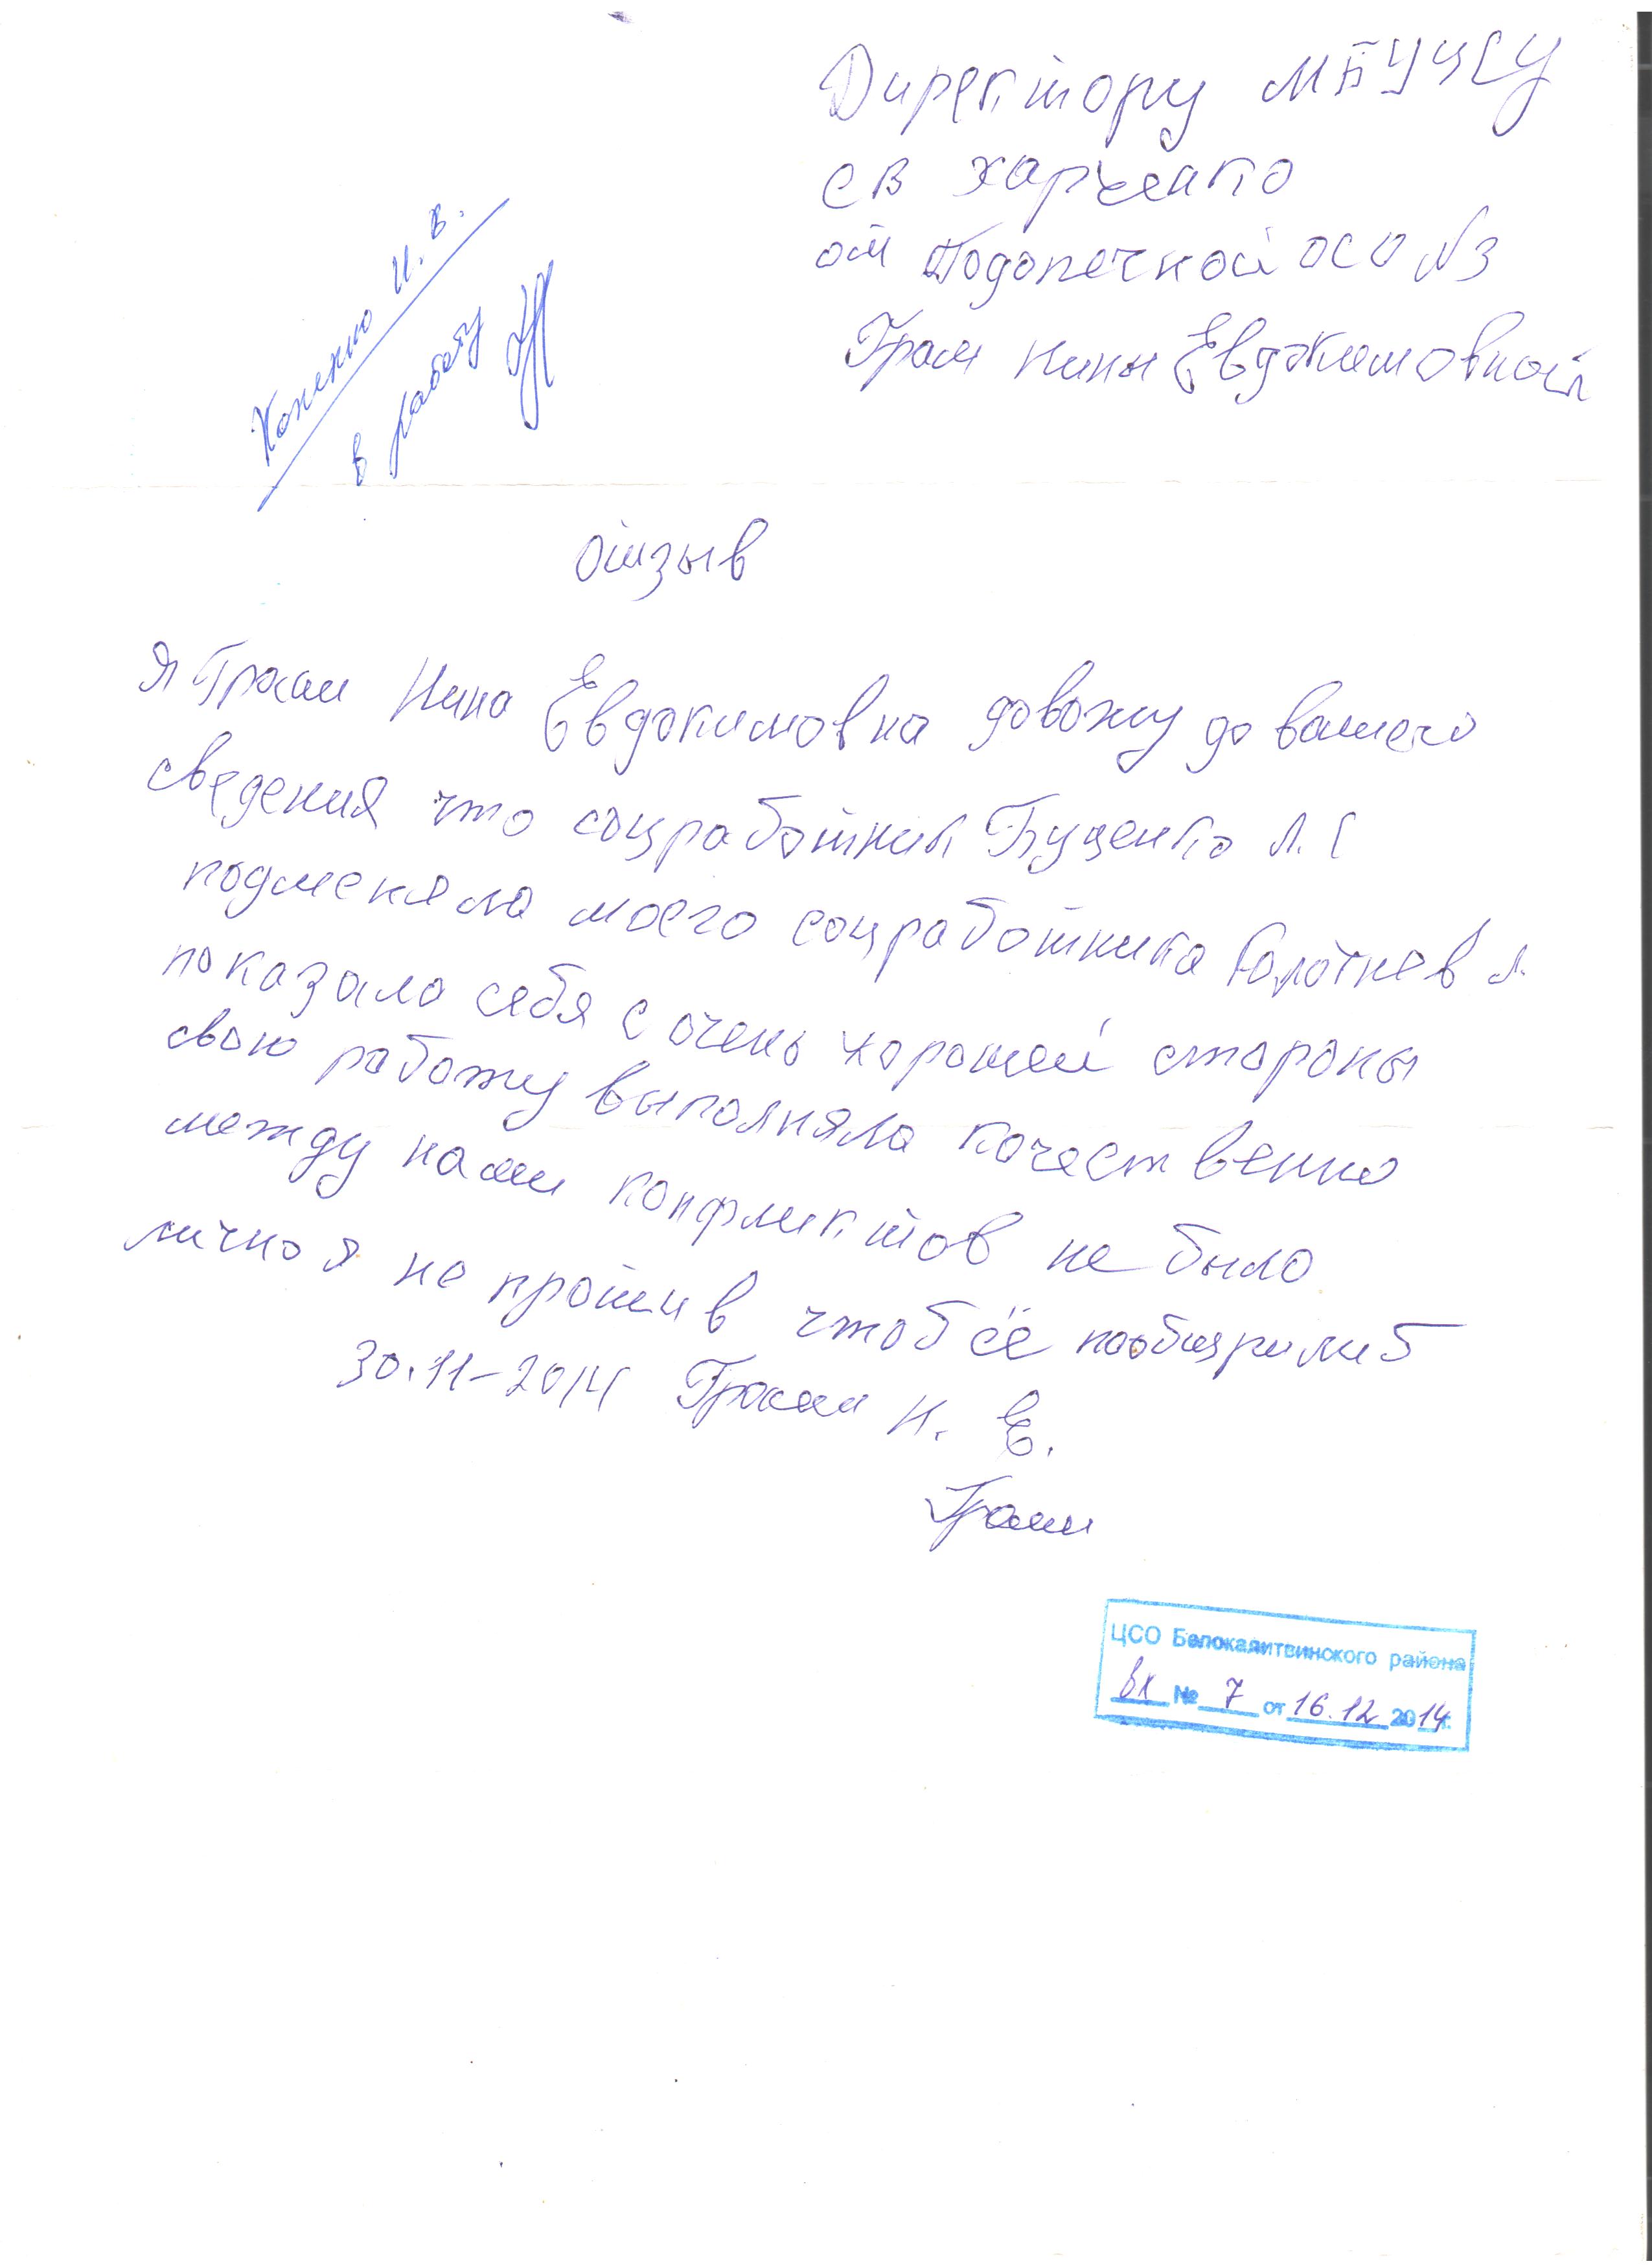 Директору МБУ ЦСУ
С В Харченко
от Подопечной ОСО №3
Грам Нины Евдокимовной
И. В.
в работу
Отзыв
Я Грам Нина Евдокимовна довожу до вашего
сведения что соцработник Буценко Л. С
подменяла моего соцработника Л.
показала себя с очень хорошей стороны
свою работу выполняла качественно
между нами конфликтов не было
лично я не против чтоб её
30.11-2014 Грам Н. Е.
Грам
ЦСО Белокалитвинского района
вх № 7 от 16.12 2014 г.